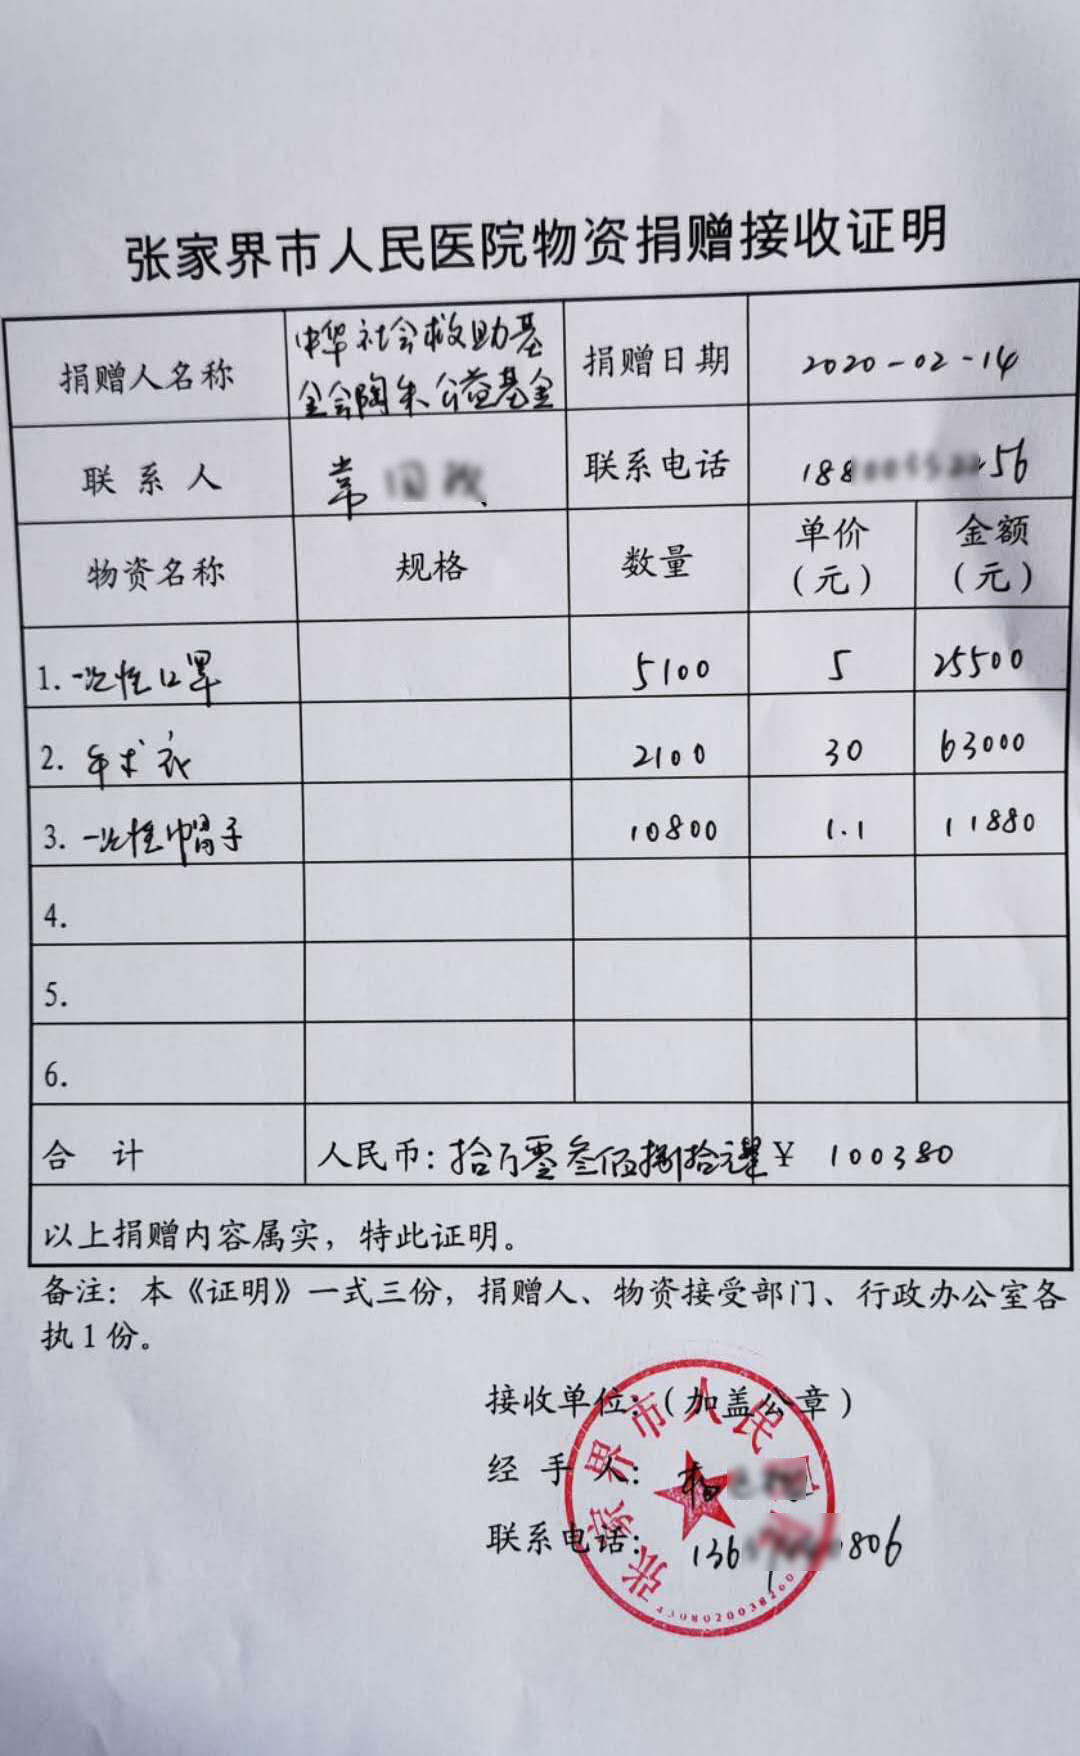 张家界市人民医院物资捐赠接收证明
捐赠人名称 中华社会救助基金会陶朱公益基金 捐赠日期 2020-02-14
联系人 常 联系电话 188 56
物资名称 规格 数量 单价（元） 金额（元）
1. 一次性口罩 5100 5 25500
2. 手术衣 2100 30 63000
3. 一次性帽子 10800 1.1 11880
4.
5.
6.
合计 人民币：拾万零叁佰捌拾元整 ¥ 100380
以上捐赠内容属实，特此证明。
备注：本《证明》一式三份，捐赠人、物资接受部门、行政办公室各
执1份。
接收单位：（加盖公章）
经手人：杨
联系电话：136 806
张家界市人民
4308020038260